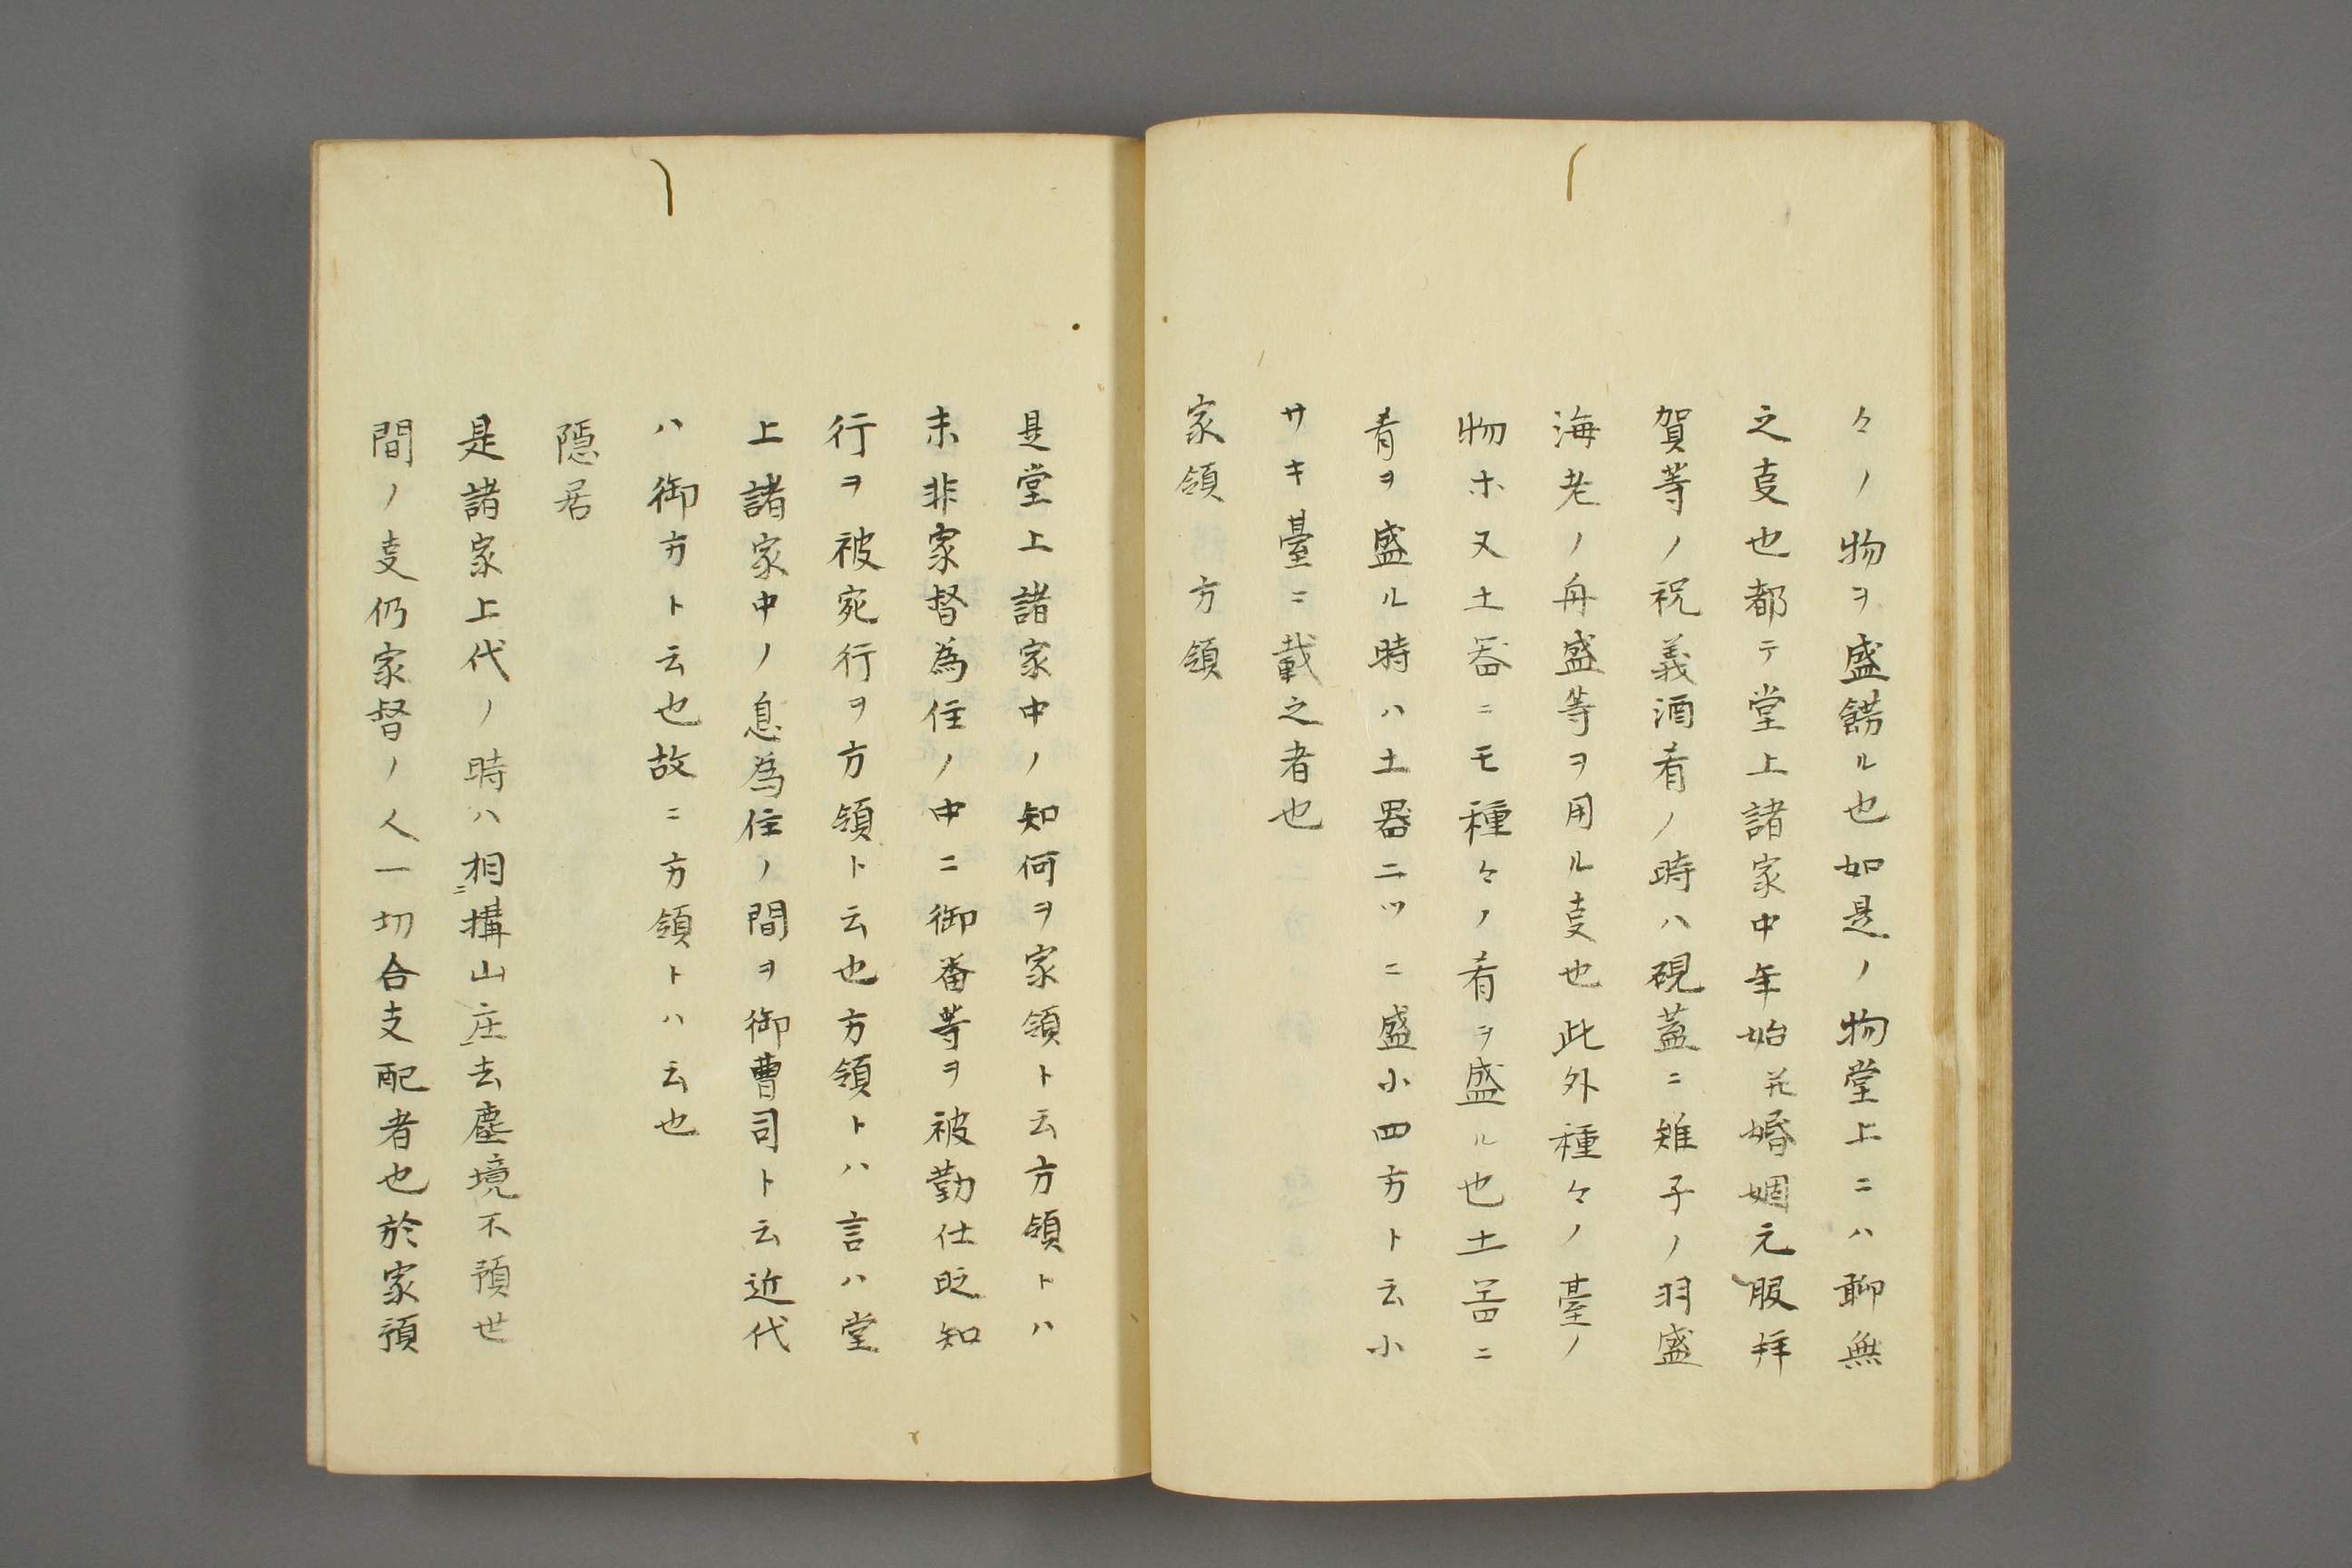 々ノ物ヲ盛餝ル也如是ノ物堂上ニハ聊無
之支也都テ堂上諸家中年始并婚姻元服拝
賀等ノ祝義酒肴ノ時ハ硯蓋ニ雉子ノ羽盛
海老ノ舟盛等ヲ用ル支也此外種々ノ臺ノ
物ホ又土器ニモ種々ノ肴ヲ盛ル也土器ニ
肴ヲ盛ル時ハ土器二ツニ盛小四方ト云小
サキ臺ニ載之者也
家領 方領
是堂上諸家中ノ知何ヲ家領ト云方領トハ
未非家督為住ノ中ニ御番等ヲ被勤仕貶知
行ヲ被宛行ヲ方領ト云也方領トハ言ハ堂
上諸家中ノ息為住ノ間ヲ御曹司ト云近代
ハ御方ト云也故ニ方領トハ云也
隠居
是諸家上代ノ時ハ相ニ構山庄去塵境不預世
間ノ支仍家督ノ人一切合支配者也於家領